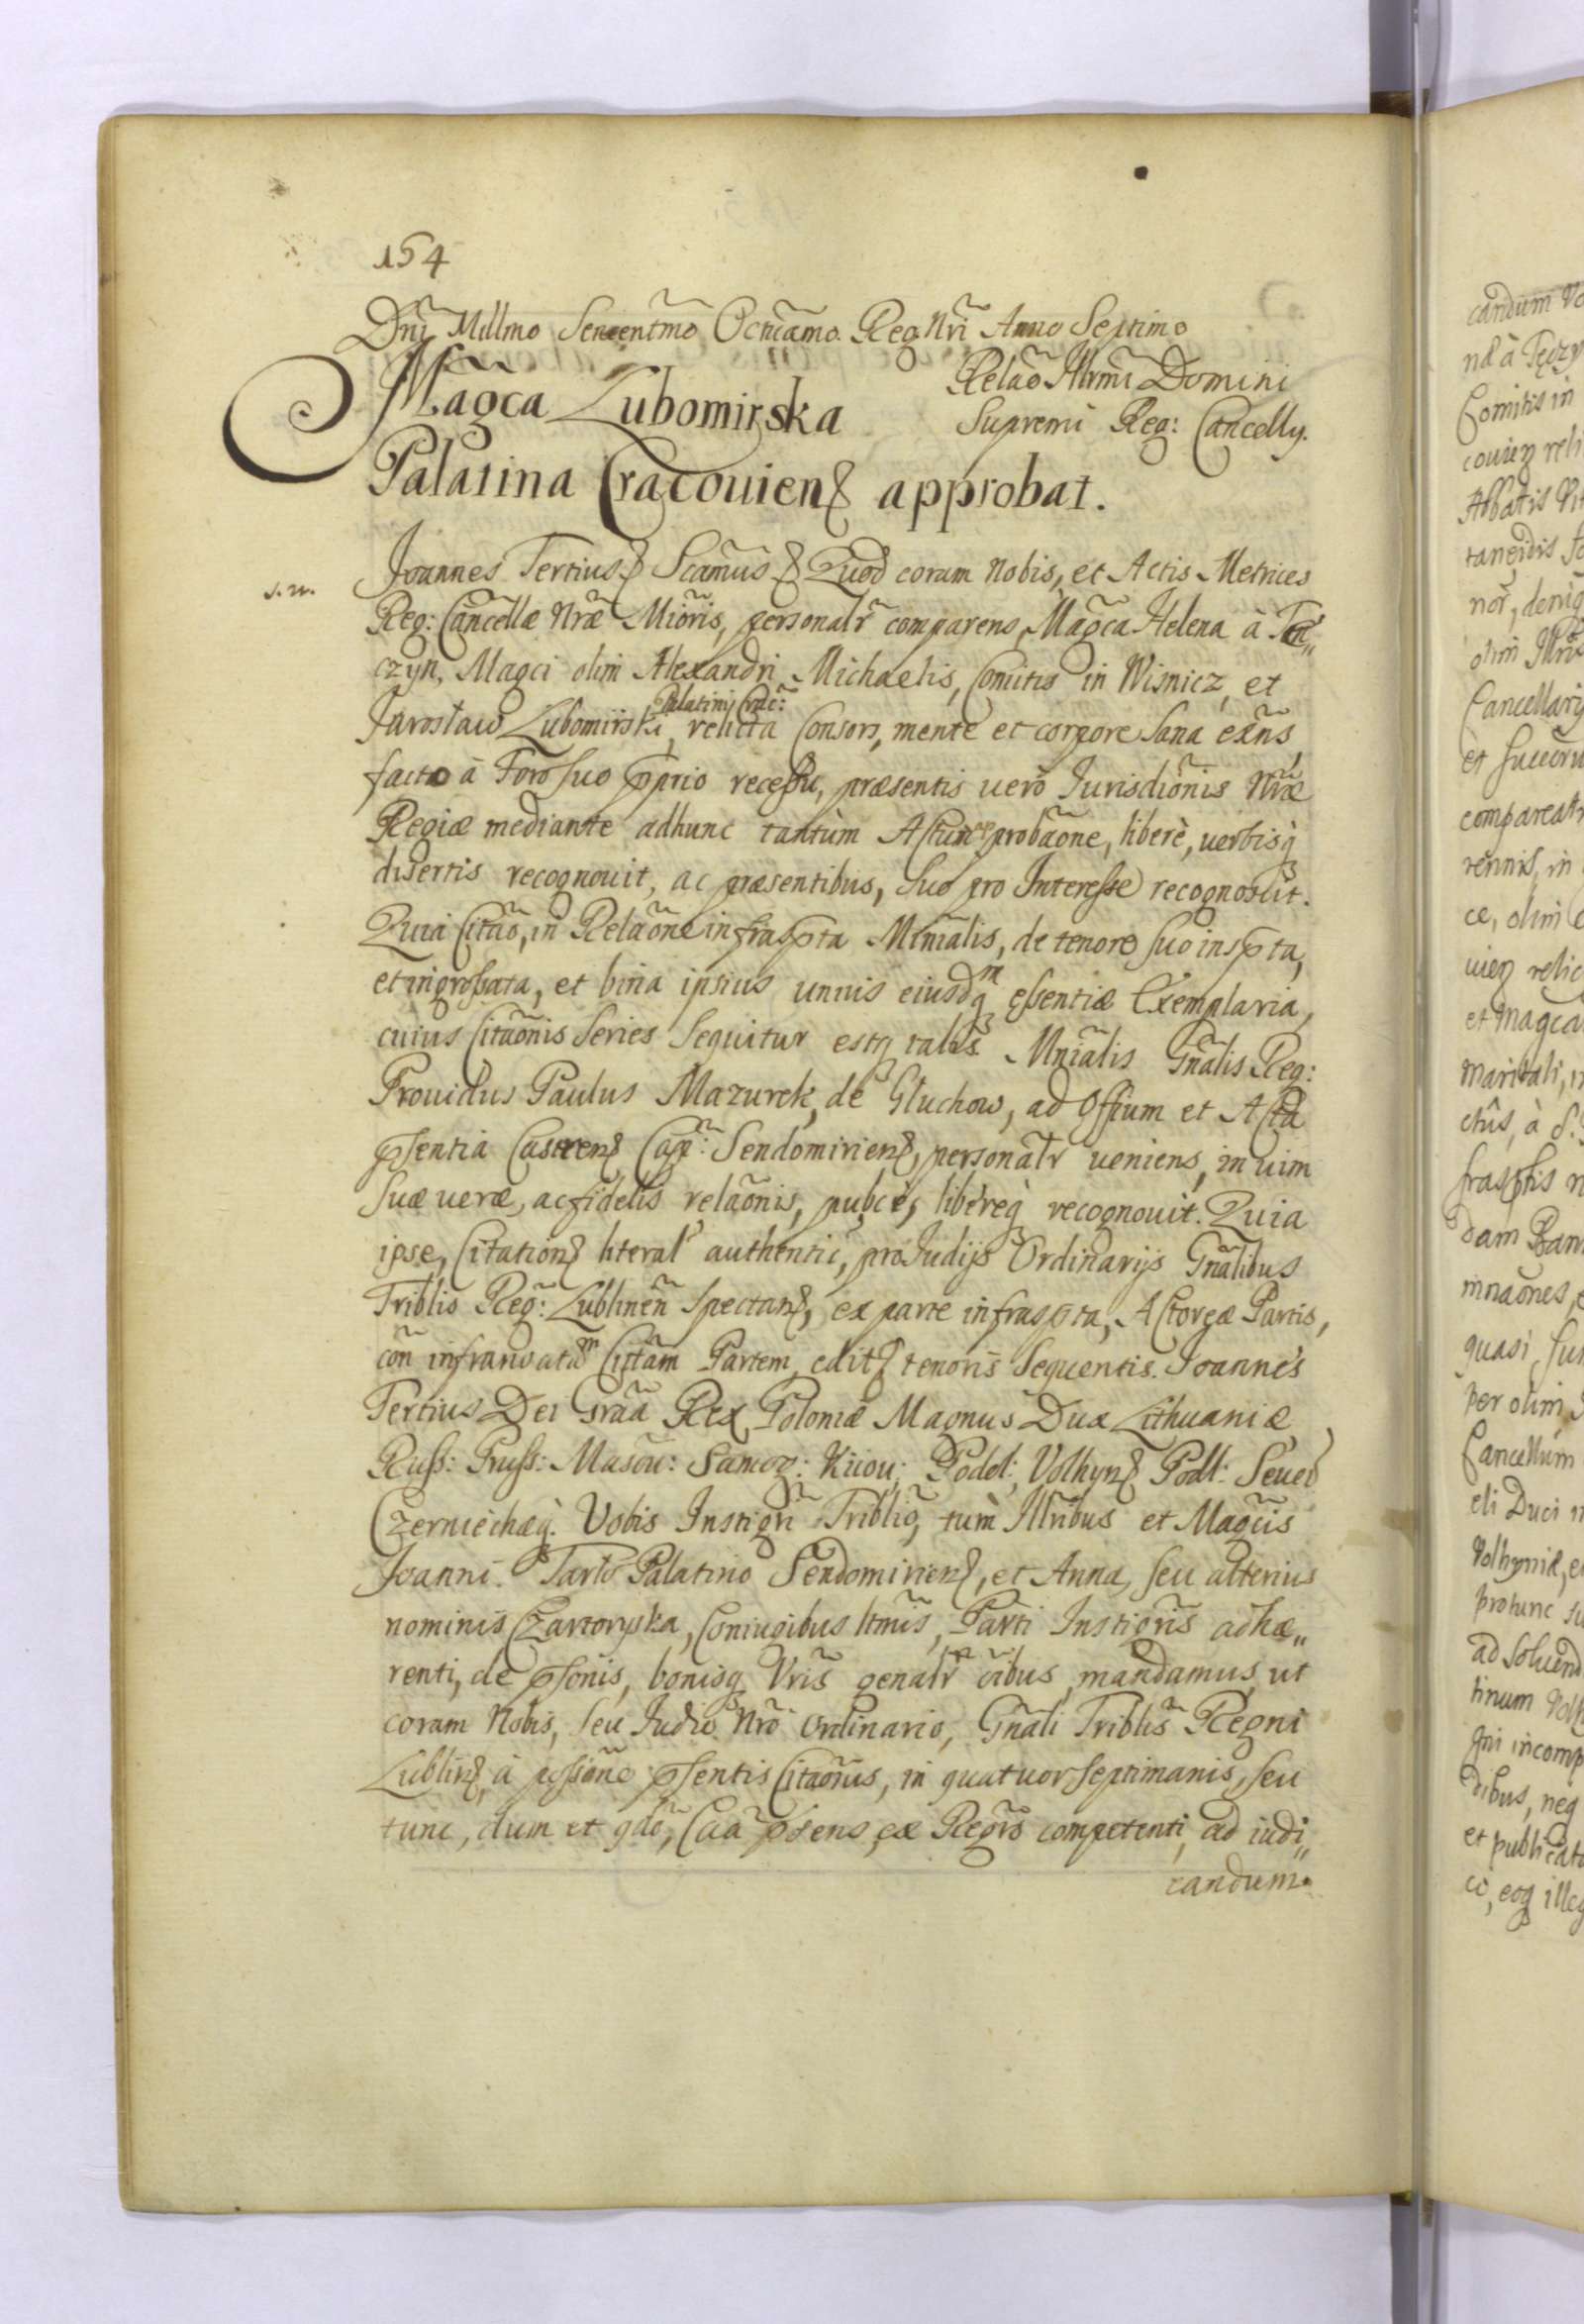 154
Dnĩ Millmo Sexcentmõ Octuãmo. Reg Nrĩ Anno Septimo
Relaõ Illrmĩ Domini
Supremi Reg: Cancelly.
Mag̃ca Lubomirska
Palatina Cracouien approbat.
s. n.
Joannes Tertius Scam̃us Quod coram Nobis, et Actis Metrices
Reg: Cancellæ Nræ Mioris, personalr̃ comparens, Mag̃ca Helena à Ten„
czyn, Magci olim Alexandri Michaelis, Comitis in Wisnicz, et
Palatinj Crac:
Jarosław Lubomirski, relicta Consors, mente et corpore sana exñs
facto à Foro suo pprio recessu, præsentis uerò Jurisdiõnis Nræ
Regiæ mediante adhunc tantùm Actum approbaõne, liberè, uerbisq̀
disertis recognouit, ac præsentibus, suo pro Interesse recognoscit.
Quia Citaõ, in Relaõne infraspta Mnĩalis, de tenore suo inspta,
et ingrossata, et bina ipsius unnis eiusdq̃m essentiæ Exemplaria,
cuius Citaõnis series sequitur estq talis Mnĩalis Gñalis Reg:
Prouidus Paulus Mazurek, de Głuchow, ad Offium et Acta
psentia Castren Cap: Sendomirien, personalr̃ ueniens, in uim
suæ ueræ, ac fidelis relaõnis, pubcè, libèreq̀ recognouit. Quia
ipse, Citation literal authentic, pro Judijs Ordinarijs Gñalibus
Triblis Reg: Lublineñ spectan, ex parte infraspta, Actoreæ Partis,
coñ infranoatam Cittãm Partem, edit tenoris sequentis. Joannes
Tertius Dei Graã Rex Poloniæ Magnus Dux Lithuaniæ,
Russ: Pruss: Masou: Samog: Kiiou: Podol: Volhyn Podl: Seuer
Czerniechæq̀. Vobis Instigri Triblis, tùm Illribus et Magcis
Joanni Tarlo Palatino Sendomirien, et Anna, seu alterius
nominis Czartoryska, Coniugibus ltmis, Parti Instigris adhæ„
renti, de psonis, bonisq Vris genalr̃ oĩbus, mandamus, ut
coram Nobis, seu Judio Nrõ Ordinario, Gñali Triblis Regni
Lublin, à possione psentis Citaõnis, in quatuor septimanis, seu
tunc, dum et qdo, Caã psens, ex Regrõ competenti, ad iudi„
candum.